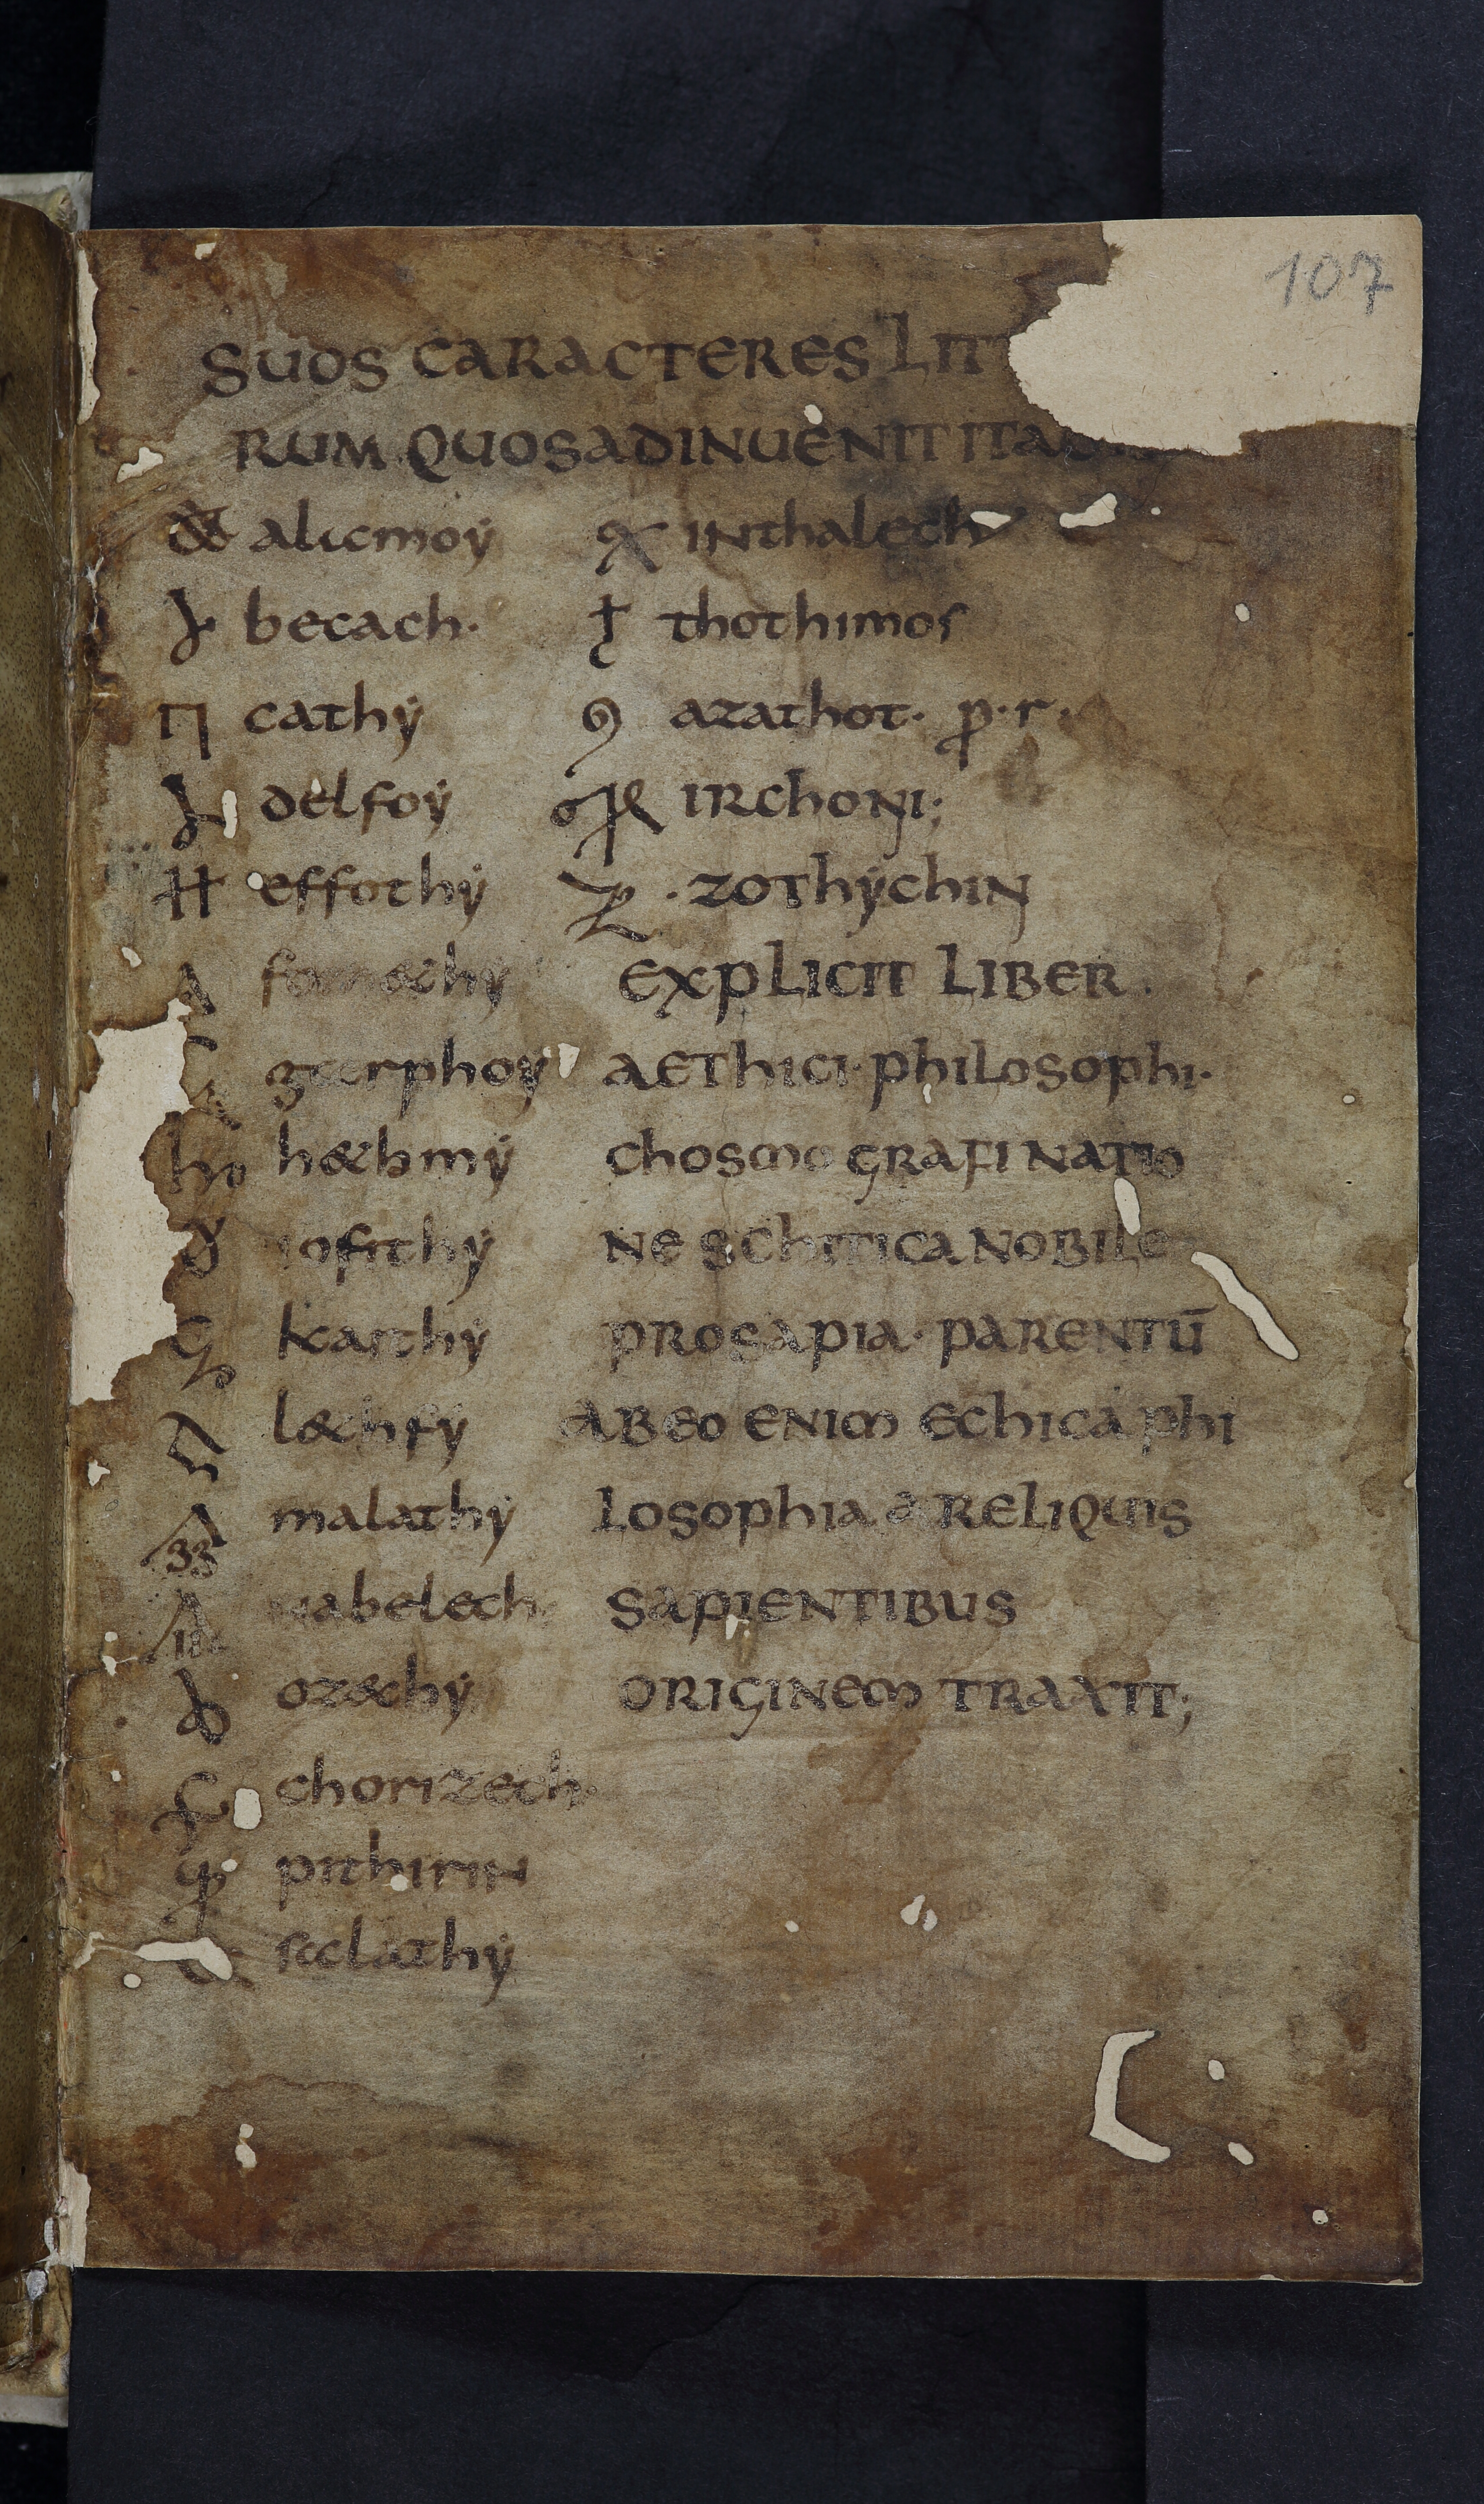 107
SUOS CARACTERES LITT
RUM QUOS ADINUENIT ITA
alicmoẏ
becach.
cathẏ
delfoẏ
effothẏ
fomethẏ
garphoẏ
hethmẏ
iofithẏ
kaithẏ
lethfẏ
malathẏ
nabelech
ozechẏ
chorizech.
pithirin
salathẏ
inthalech
thothimos
azathot. p.r.
irchoni;
. zothẏchin
EXPLICIT LIBER.
AETHICI PHILOSOPHI.
CHOSMOGRAFI NATIO
NE SCHITICA NOBILE
PROSAPIA. PARENTŪ
AB EO ENIM ETHICA PHI
LOSOPHIA A RELIQUIS
SAPIENTIBUS
ORIGINEM TRAXIT;